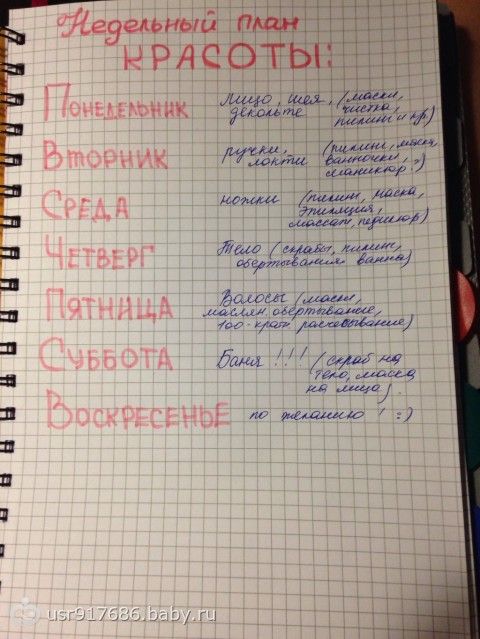 Недельный план
КРАСОТЫ:
Понедельник лицо, шея, (маски,
декольте чистка,
пилинги и пр.)
Вторник ручки, (пилинг, маска,
локти ванночки,
маникюр!)
Среда ножки (пилинг, маска,
эпиляция,
массаж, педикюр)
Четверг Тело (скрабы, пилинг,
обертывания ванна)
Пятница Волосы (маски,
маслян. обертывание,
100-крат. расчесывание)
Суббота Баня!!! (скраб на
тело, маска
на лицо).
Воскресенье по желанию! :)
usr917686.baby.ru